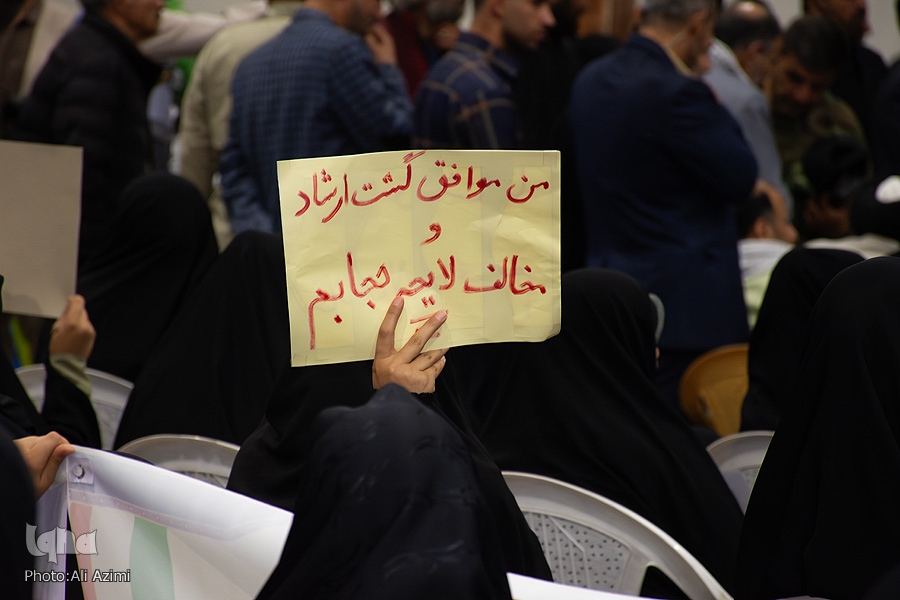 من موافق گشت ارشاد
و
مخالف لایحه حجابم
iqna
Photo:Ali Azimi